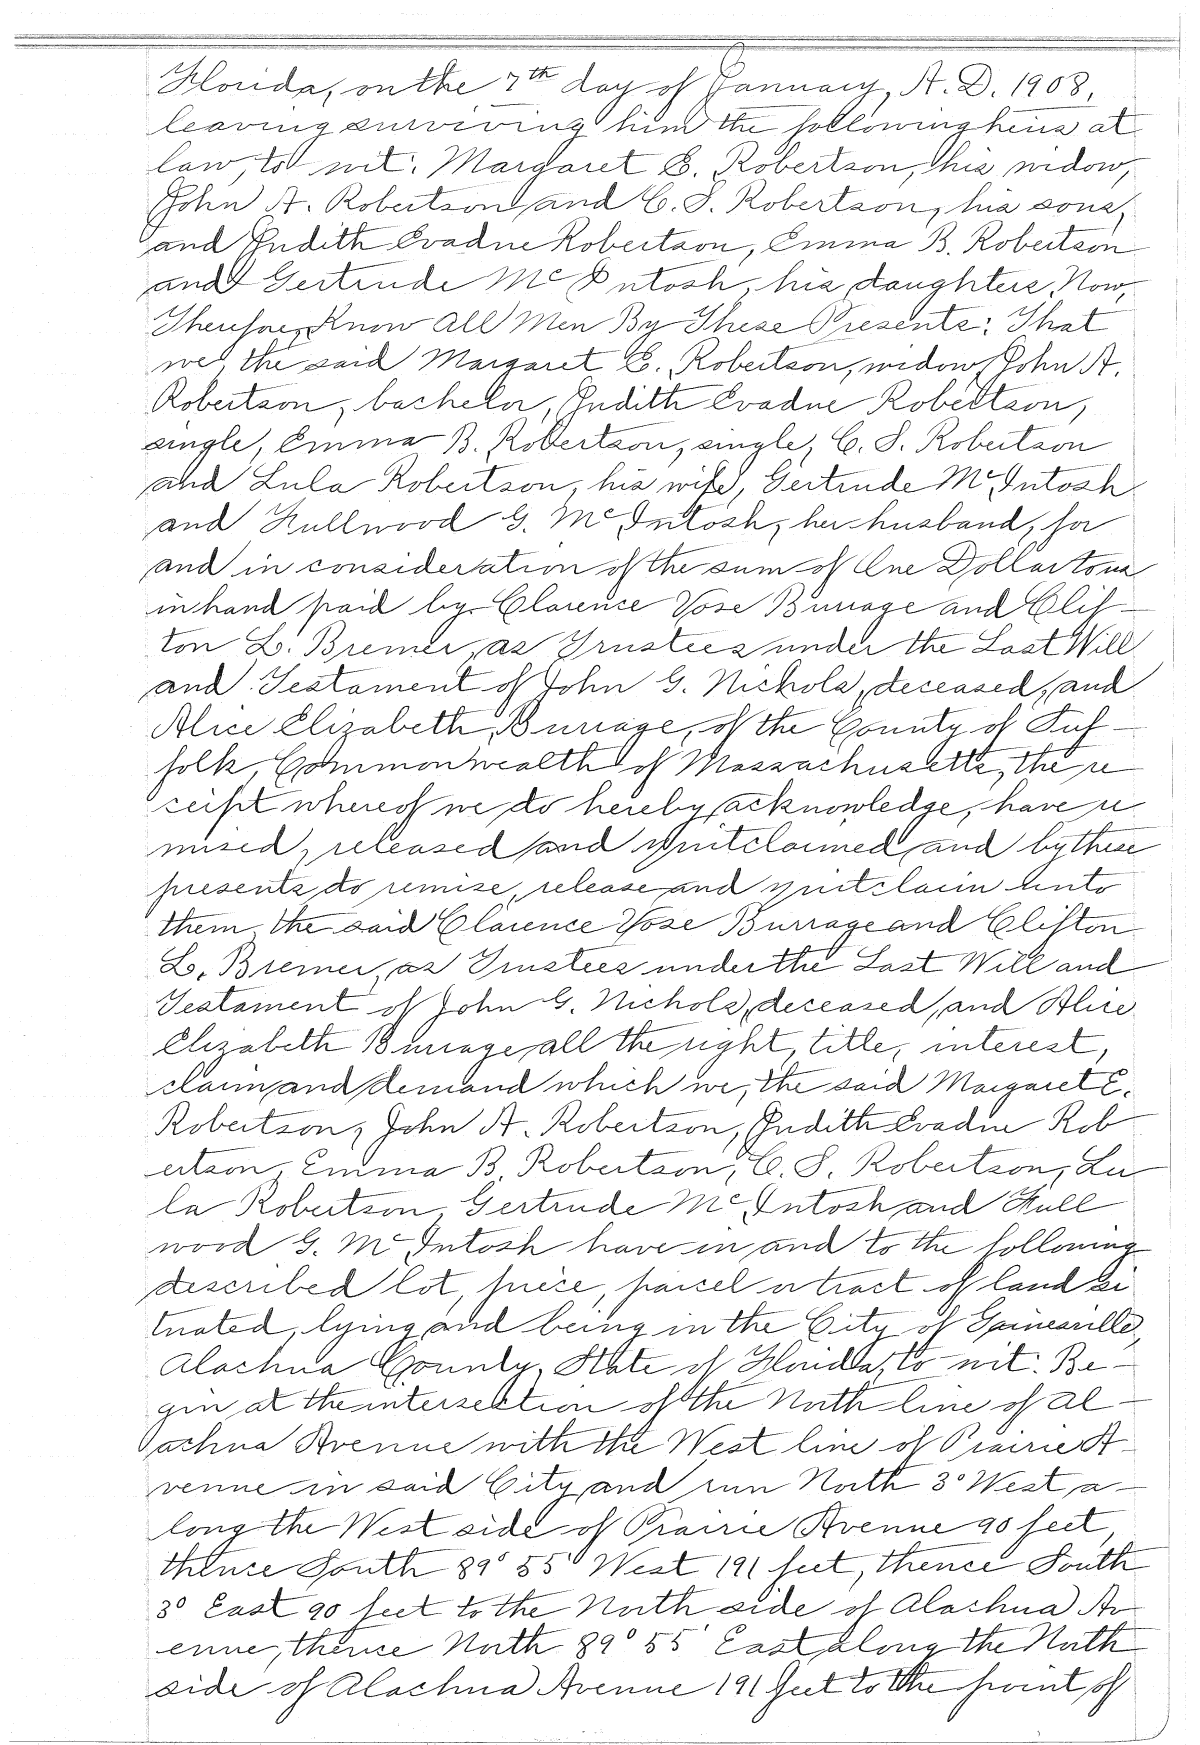 Florida, on the 7th day of January, A. D. 1908,
leaving surviving him the following heirs at
law, to wit: Margaret E. Robertson, his widow,
John A. Robertson and C. S. Robertson, his sons,
and Judith Evadne Robertson, Emma B. Robertson
and Gertrude McIntosh, his daughters. Now,
Therefore, Know All Men By These Presents: That
we, the said Margaret E. Robertson, widow, John A.
Robertson, bachelor, Judith Evadne Robertson,
single, Emma B. Robertson, single, C. S. Robertson
and Lula Robertson, his wife, Gertrude McIntosh
and Fullwood G. McIntosh, her husband, for
and in consideration of the sum of One Dollar to us
in hand paid by Clarence Vose Burrage and Clif-
ton L. Bremer, as Trustees under the Last Will
and Testament of John G. Nichols, deceased, and
Alice Elizabeth Burrage, of the County of Suf-
folk, Commonwealth of Massachusetts, the re
ceipt whereof we do hereby acknowledge, have re
mised, released and quitclaimed and by these
presents do remise, release and quitclaim unto
them, the said Clarence Vose Burrage and Clifton
L. Bremer, as Trustees under the Last Will and
Testament of John G. Nichols, deceased, and Alice
Elizabeth Burrage all the right, title, interest,
claim and demand which we, the said Margaret E.
Robertson, John A. Robertson, Judith Evadne Rob
ertson, Emma B. Robertson, C. S. Robertson, Lu
la Robertson, Gertrude McIntosh and Full
wood G. McIntosh have in and to the following
described lot, piece, parcel or tract of land si
tuated, lying and being in the City of Gainesville,
Alachua County, State of Florida, to wit: Be-
gin at the intersection of the North line of Al-
achua Avenue with the West line of Prairie A-
venue in said City and run North 3° West a-
long the West side of Prairie Avenue 90 feet,
thence South 89° 55' West 191 feet, thence South
3° East 90 feet to the North side of Alachua Av
enue, thence North 89° 55' East along the North
side of Alachua Avenue 191 feet to the point of